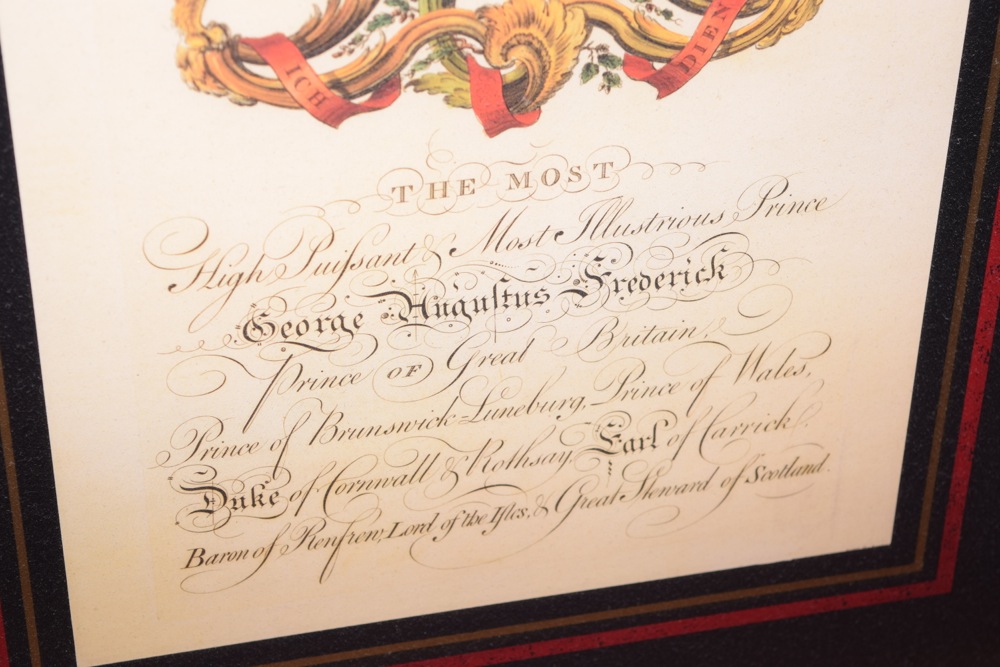 ICH DIEN
THE MOST
High Puiſsant & Most Illustrious Prince
George Auguſtus Frederick
Prince OF Great Britain,
Prince of Brunswick-Luneburg, Prince of Wales,
Duke of Cornwall & Rothsay, Earl of Carrick,
Baron of Renfrew, Lord of the Iſles, & Great Steward of Scotland.